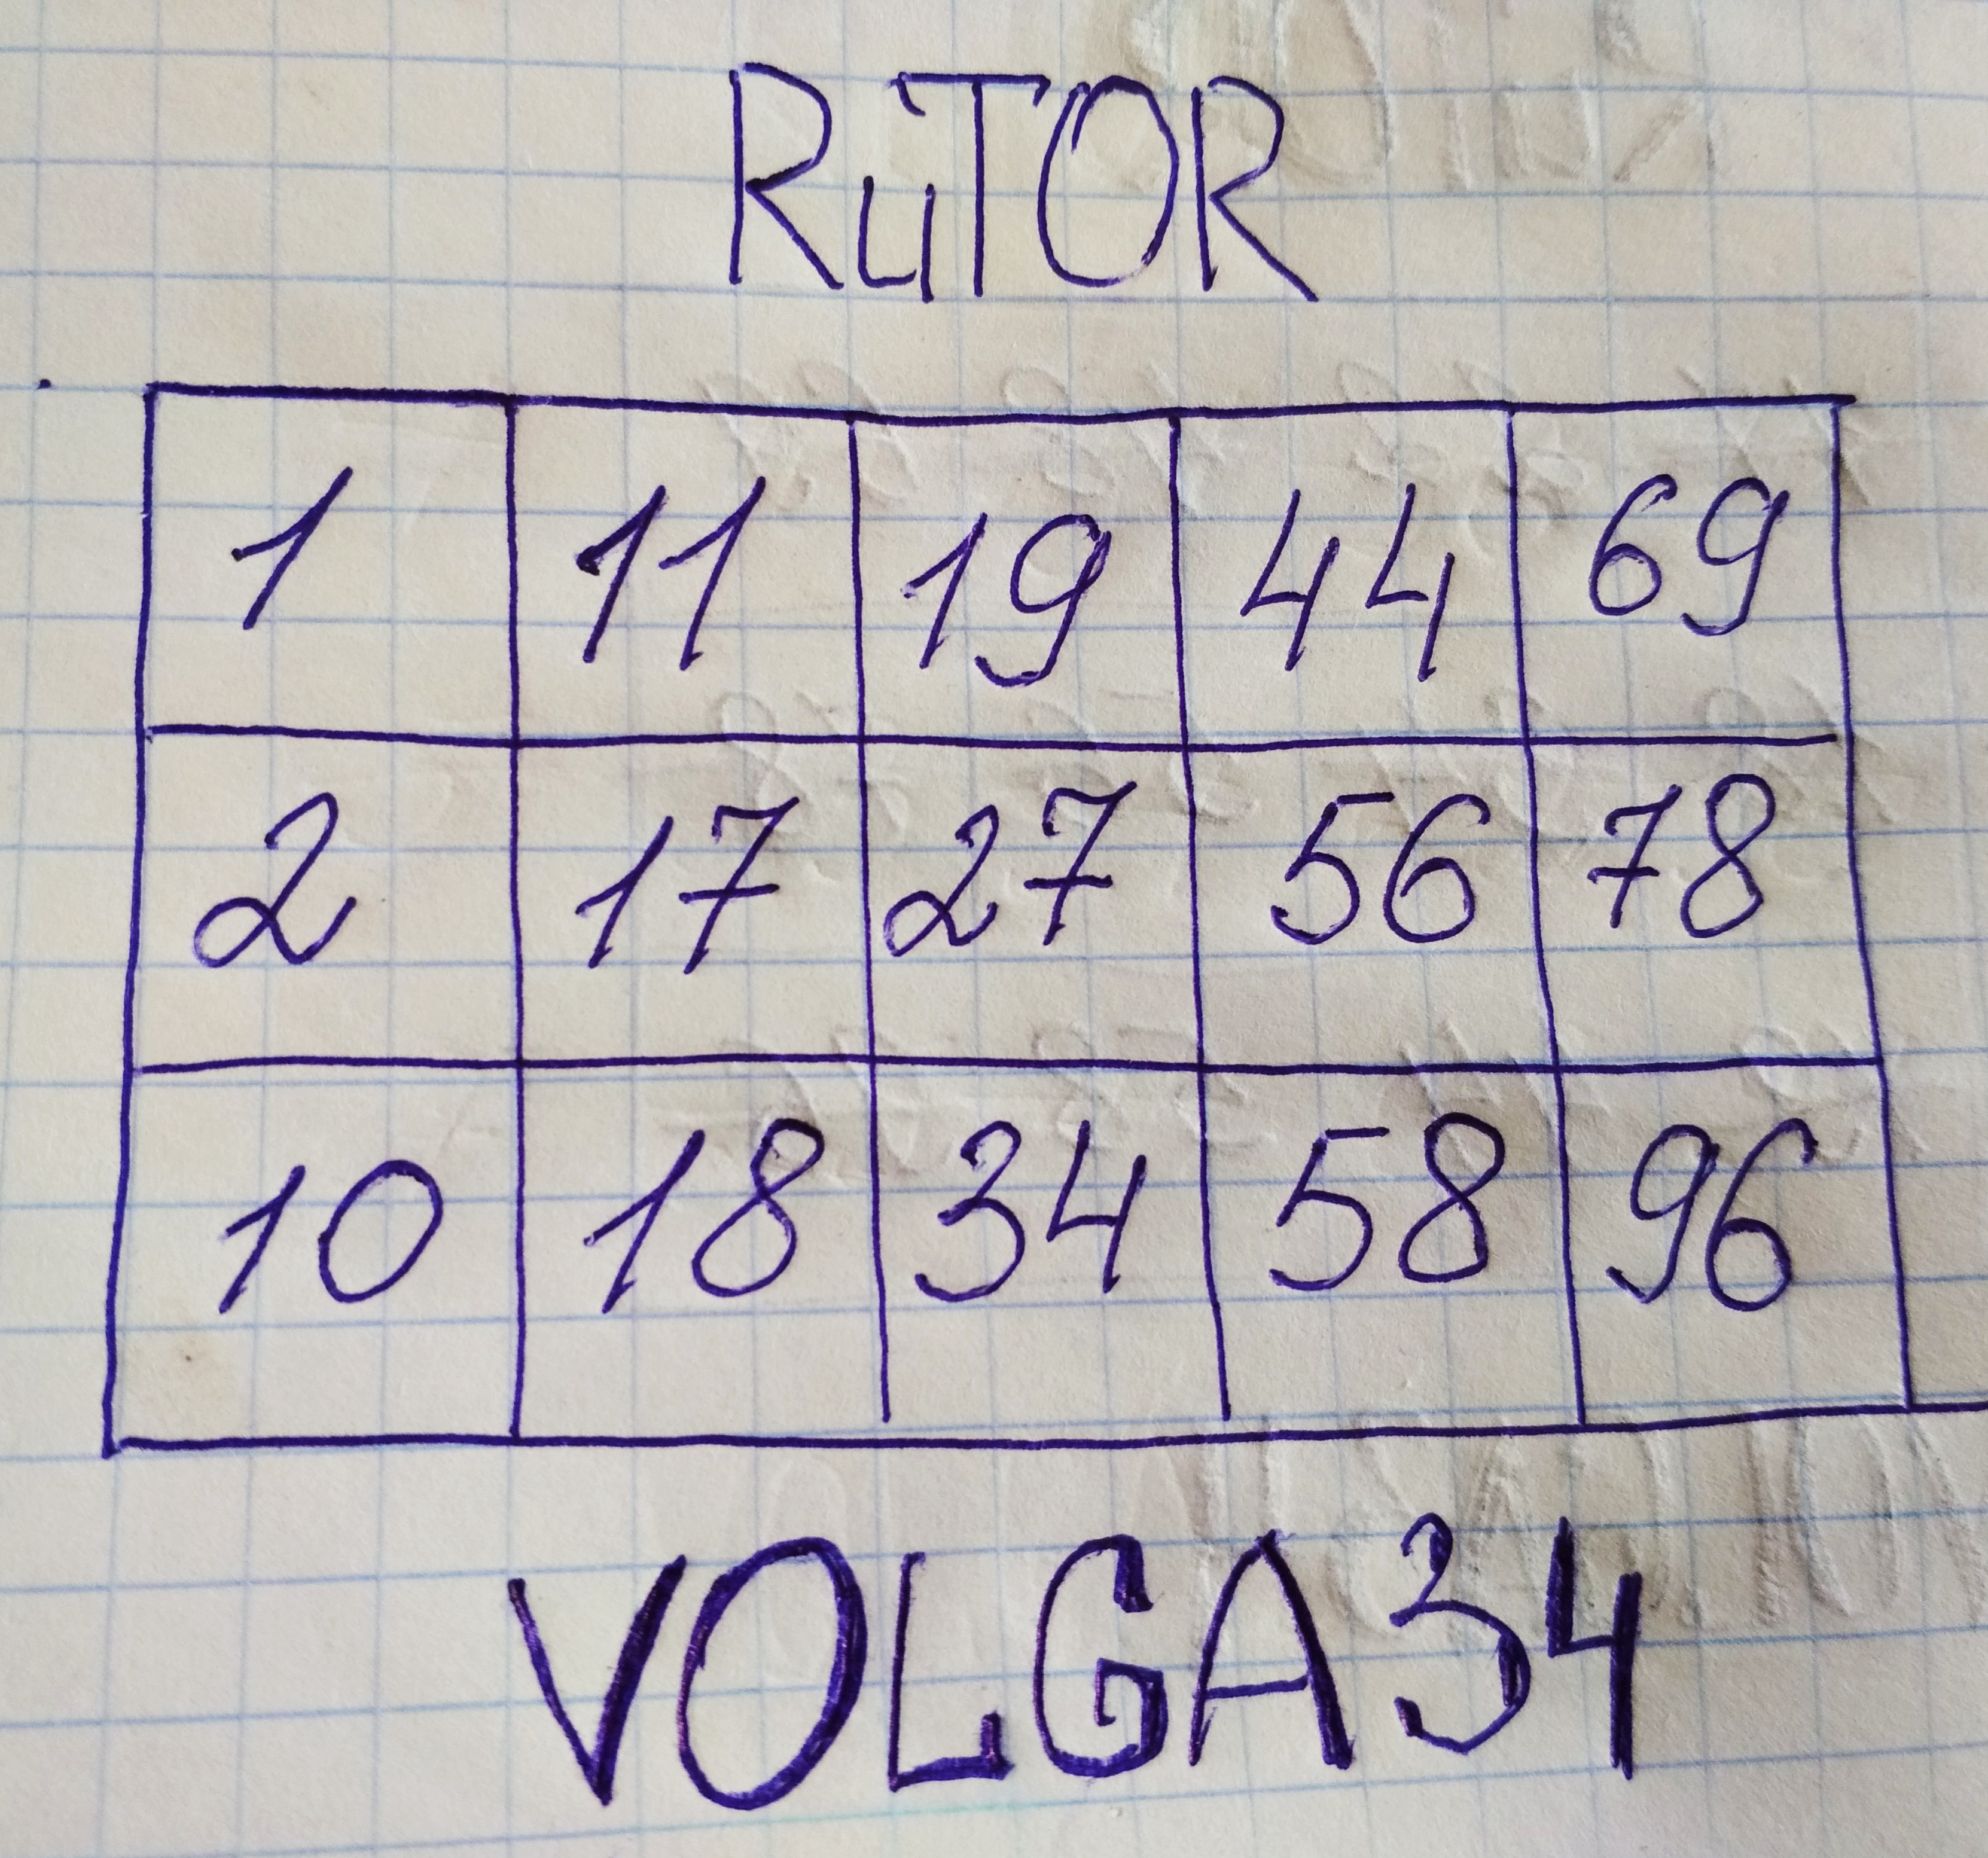 RuTOR
1 11 19 44 69
2 17 27 56 78
10 18 34 58 96
VOLGA34